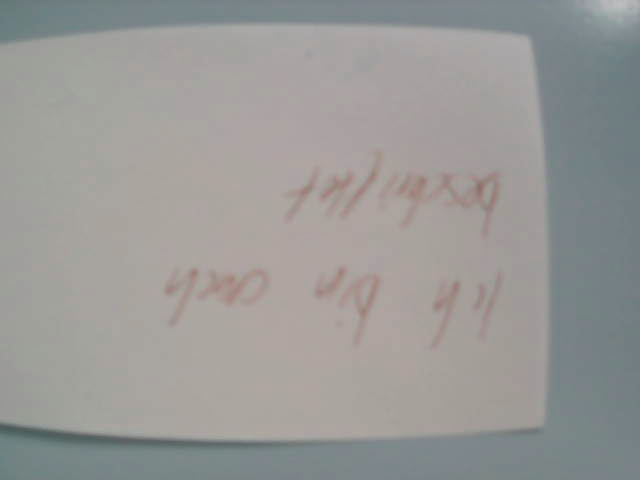 Ich bin auch
beschriftet